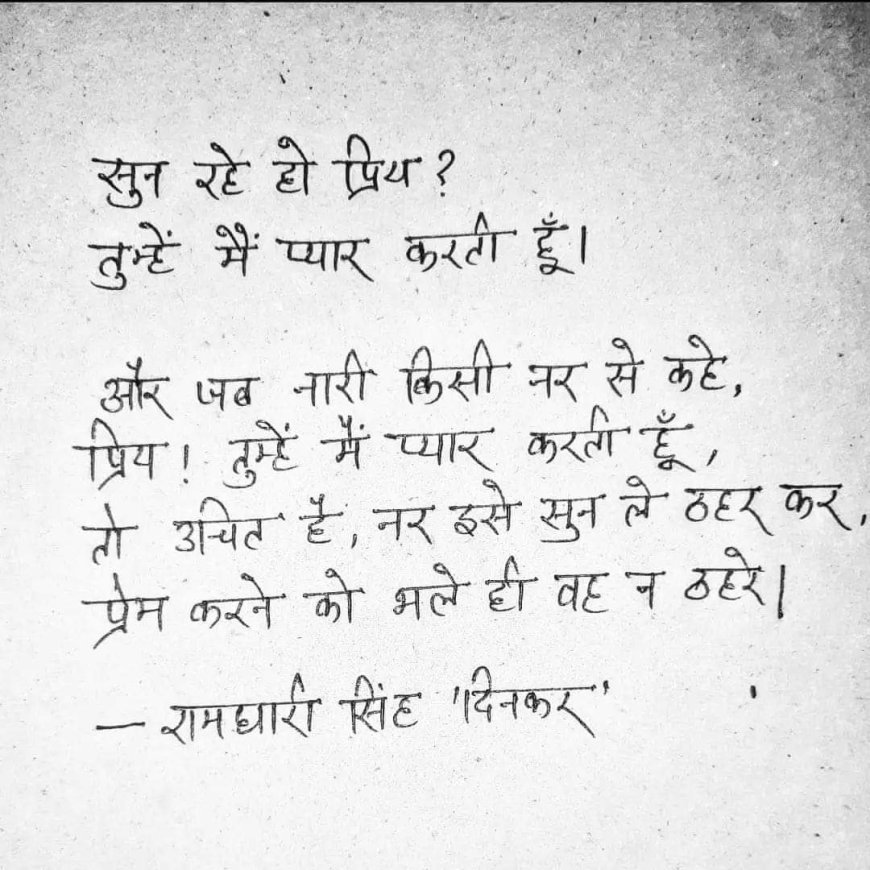 सुन रहे हो प्रिय?
तुम्हें मैं प्यार करती हूँ।
और जब नारी किसी नर से कहे,
प्रिय! तुम्हें मैं प्यार करती हूँ,
तो उचित है, नर इसे सुन ले ठहर कर,
प्रेम करने को भले ही वह न ठहरे।
— रामधारी सिंह "दिनकर'